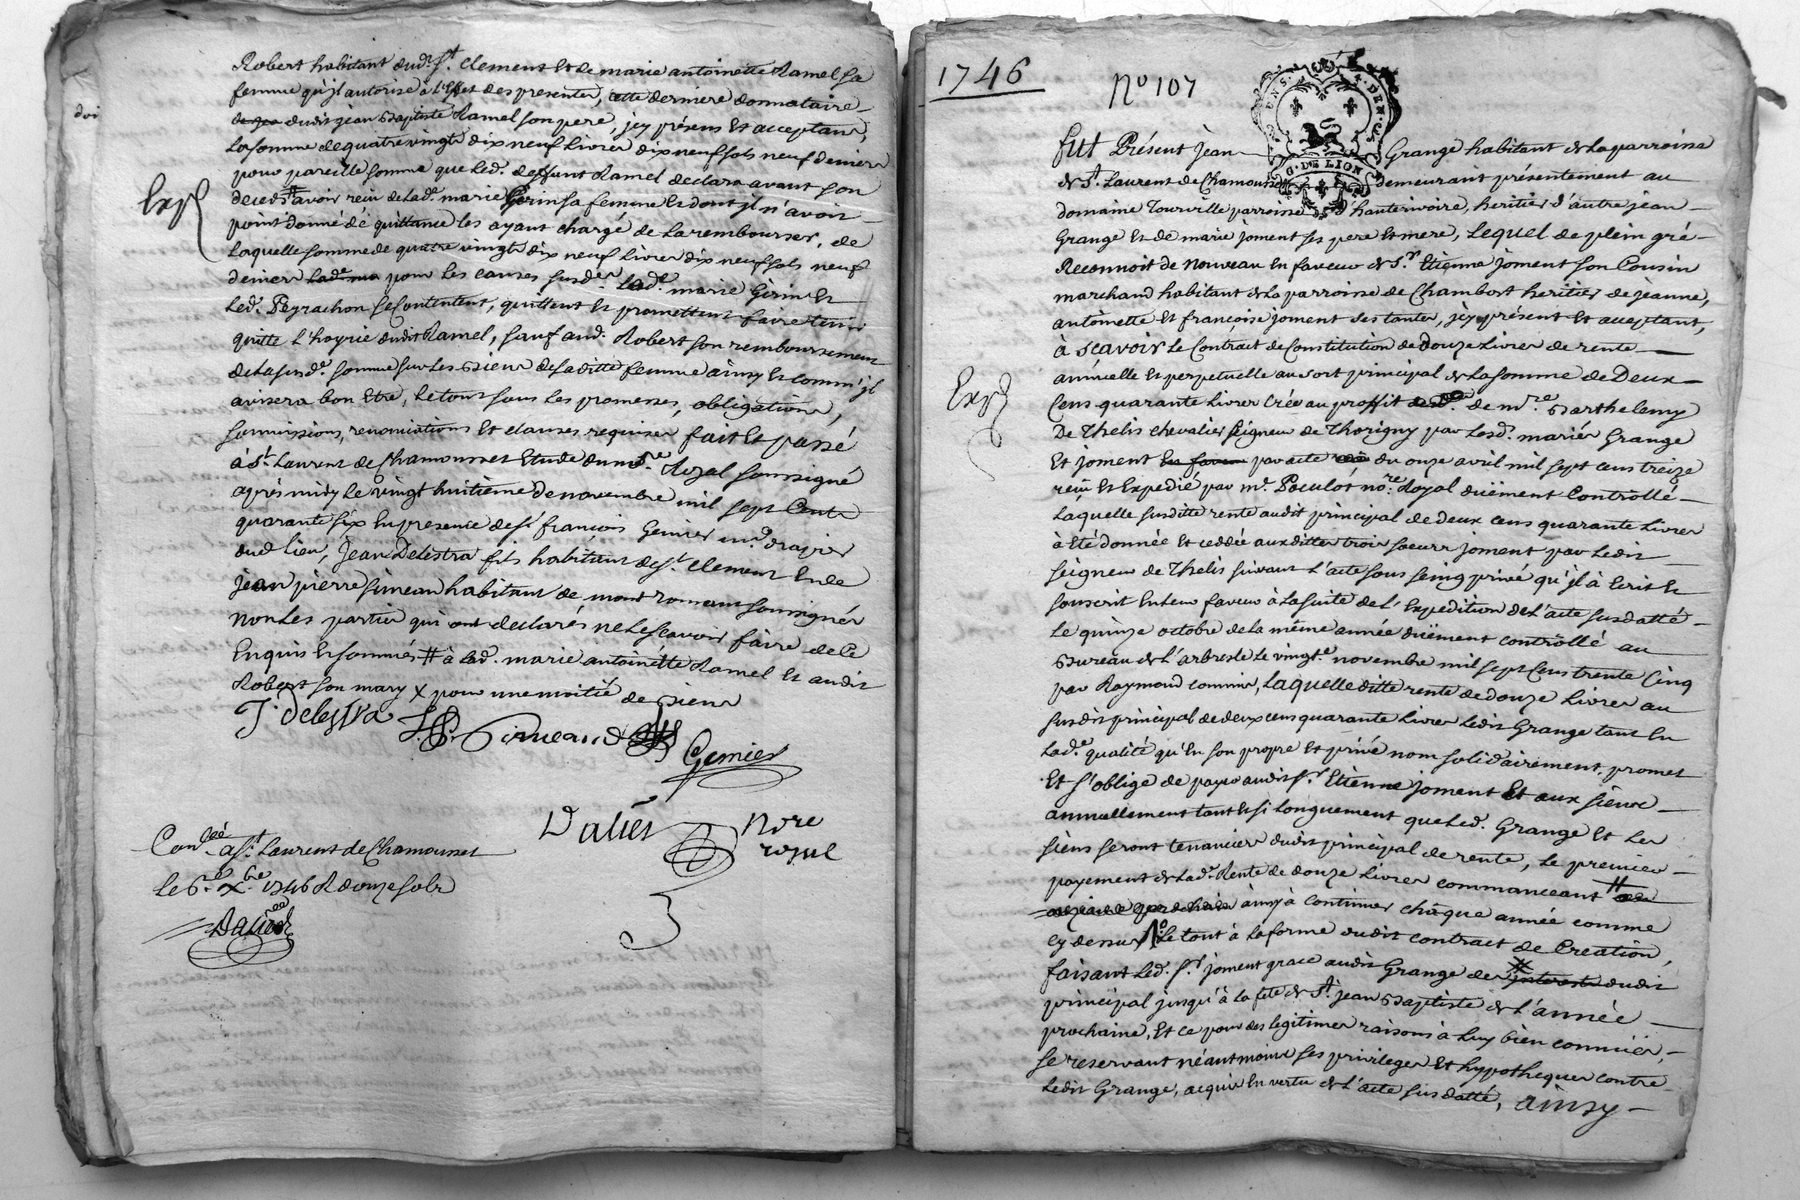 Robert habitant dud. St. Clement et de marie antoinette Ramel sa
femme qu'jl autorise à l'effet des presentes, cette derniere donnataire
dudit jean Baptiste Ramel son pere, jcy présens et acceptans,
la somme de quatre vingts dix neuf livres dix neuf sols neuf deniers
pour pareille somme que led. deffunt Ramel declara avant son
deceds avoir reçu de lad. marie Girin sa femme et dont jl n'avoit
point donné de quittance les ayant chargé de la rembourser, de
laquelle somme de quatre vingts dix neuf livres dix neuf sols neuf
deniers pour les causes susd. lad. marie Girin et
led. Peyrachon se contentent, quittent et promettent faire tenir
quitte l'hoyrie dudit Ramel, sauf aud. Robert son remboursement
de la susd. somme sur les biens de la ditte femme ainsy et comm'jl
avisera bon etre, le tout sous les promesses, obligations,
soumissions, renonciations et clauses requises fait et passé
à St. Laurent de Chamousset Etude du nore. Royal soussigné
après midy le vingt huitième de novembre mil sept Cents
quarante six En presence de sr. françois Genier md. drapier
dud. lieu, Jean Delestra fils habitant de St. Clement et de
jean pierre simean habitant de mont romant soussignés
non les parties qui ont declarés ne le scavoir faire de ce
Enquis et sommés # à lad. marie antoinette Ramel et audit
Robert son mary x pour une moitié de siens
J. Delestra
Genier
Dalier nore royal
Conlé. à St. Laurent de Chamousset
le 6e. Xbre. 1746 R douze sols
Dalier
doi
Exp
1746
No 107
G. DE LION
fut Présent jean Grange habitant de la parroisse
de St. Laurent de Chamousset demeurant présentement au
domaine Tourville parroisse d'hauterivoire, heritier d'autre jean
Grange et de marie joment ses pere et mere, Lequel de plein gré
Reconnoit de nouveau en faveur de Sr. Etienne joment son Cousin
marchand habitant de la parroisse de Chambost heritier de jeanne,
antoinette et françoise joment ses tantes, jcy présent et acceptant,
à sçavoir le Contract de Constitution de Douze Livres de rente
annuelle et perpetuelle au sort principal de la somme de Deux
Cens quarante livres Créé au proffit de mre. Barthelemy
De Thelis chevalier seigneur de Thorigny par lesd. mariés Grange
et joment par acte du onze avril mil sept cens treize
reçu et Expedié par me. Poculot nore. Royal düement Controllé
Laquelle susditte rente audit principal de deux cens quarante livres
à été donnée et ceddée aux dittes trois soeurs joment par ledit
seigneur de Thelis suivant l'acte sous seing privé qu'jl à Ecrit et
souscrit En leur faveur à la suite de l'Expedition de l'acte susdatté
le quinze octobre de la même année düement controllé au
Bureau de l'arbresle le vingte. novembre mil sept Cens trente Cinq
par Raymond commis, Laquelle ditte rente de douze livres au
susdit principal de deux cens quarante livres ledit Grange tant En
lad. qualité qu'En son propre et privé nom solidairement, promet
et s'oblige de payer audit Sr. Etienne joment et aux siens
annuellement tant et si longuement que led. Grange et les
siens seront tenanciers dudit principal de rente, le premier
payement de lad. Rente de douze livres commanceant #
ainsy à continuer châque année comme
cy dessus le tout à la forme dudit contract de Creation,
faisant led. Sr. joment grace audit Grange des interests dudit
principal jusqu'à la fete de St. jean Baptiste de l'année
prochaine, Et ce pour des legitimes raisons à luy bien connües,
se reservant néantmoins ses privileges et hypotheques contre
ledit Grange, acquis en vertu de l'acte susdatté, ainsy
Exp